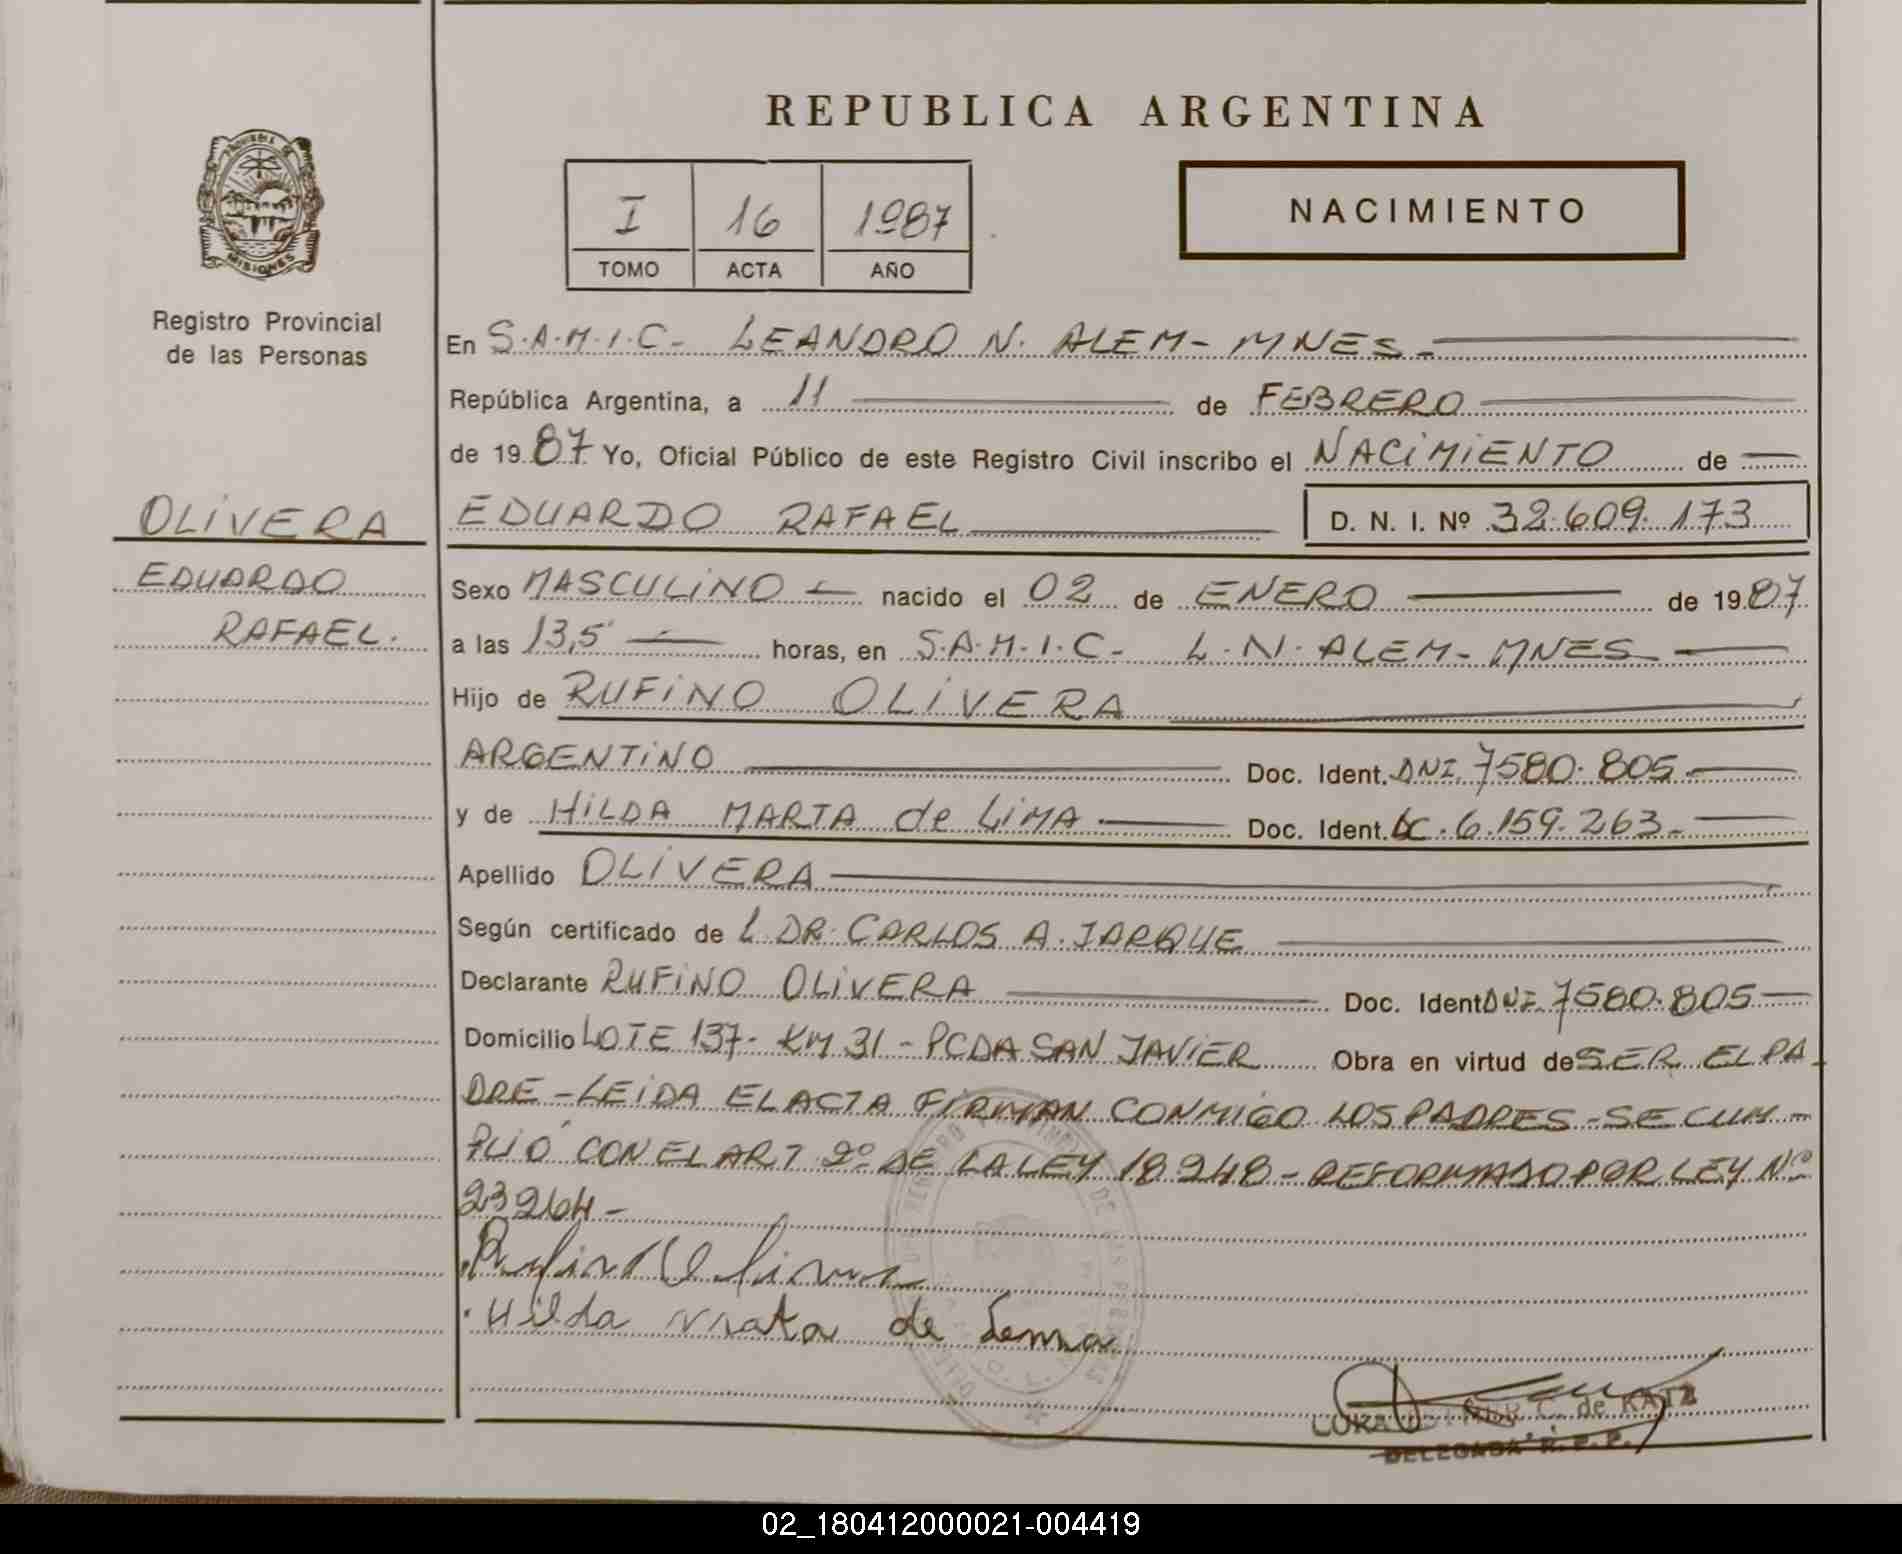 REPUBLICA ARGENTINA
PROVINCIA DE
MISIONES
Registro Provincial
de las Personas
I 16 1987
TOMO ACTA AÑO
NACIMIENTO
En S.A.M.I.C- LEANDRO N. ALEM- MNES-
República Argentina, a 11 de FEBRERO
de 1987 Yo, Oficial Público de este Registro Civil inscribo el NACIMIENTO de
OLIVERA
EDUARDO
RAFAEL.
EDUARDO RAFAEL D. N. I. Nº 32.609.173
Sexo MASCULINO nacido el 02 de ENERO de 1987
a las 13,5 horas, en S.A.M.I.C- L.N. ALEM- MNES
Hijo de RUFINO OLIVERA
ARGENTINO Doc. Ident. DNI 7580.805
y de HILDA MARTA de LIMA Doc. Ident. LC.6.159.263-
Apellido OLIVERA
Según certificado de L DR. CARLOS A. JARQUE
Declarante RUFINO OLIVERA Doc. Ident DNI 7580.805
Domicilio LOTE 137- KM 31 - PCDA SAN JAVIER Obra en virtud de SER EL PA
DRE - LEIDA EL ACTA FIRMAN CONMIGO LOS PADRES - SE CUM-
PLIÓ CON EL ART 2º DE LA LEY 18248 - REFORMADO POR LEY Nº
23264-
Rufino Olivera
Hilda Mata de Lema
de KATZ
DELEGADA R.P.P.
02_180412000021-004419